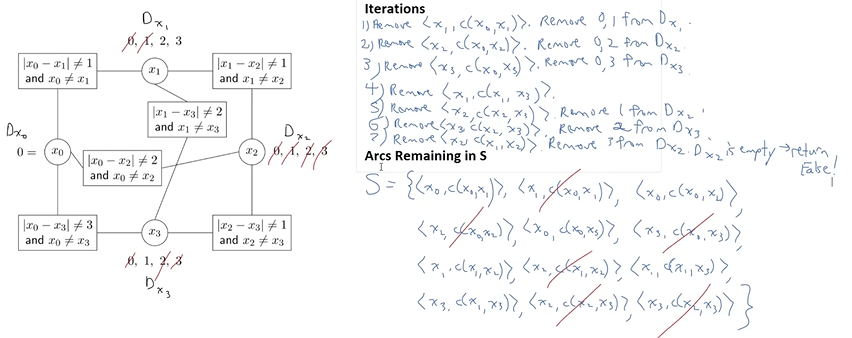 D_x₁
0, 1, 2, 3
|x₀ − x₁| ≠ 1
and x₀ ≠ x₁
x₁
|x₁ − x₂| ≠ 1
and x₁ ≠ x₂
|x₁ − x₃| ≠ 2
and x₁ ≠ x₃
D_x₀
0 =
x₀
|x₀ − x₂| ≠ 2
and x₀ ≠ x₂
x₂
D_x₂
0, 1, 2, 3
|x₀ − x₃| ≠ 3
and x₀ ≠ x₃
x₃
|x₂ − x₃| ≠ 1
and x₂ ≠ x₃
0, 1, 2, 3
D_x₃
Iterations
1) Remove ⟨x₁, c(x₀,x₁)⟩. Remove 0,1 from D_x₁.
2) Remove ⟨x₂, c(x₀,x₂)⟩. Remove 0,2 from D_x₂.
3) Remove ⟨x₃, c(x₀,x₃)⟩. Remove 0,3 from D_x₃.
4) Remove ⟨x₁, c(x₁, x₃)⟩.
5) Remove ⟨x₂, c(x₂, x₃)⟩. Remove 1 from D_x₂.
6) Remove ⟨x₃, c(x₂, x₃)⟩. Remove 2 from D_x₃.
7) Remove ⟨x₂, c(x₁, x₂)⟩. Remove 3 from D_x₂. D_x₂ is empty → return False!
Arcs Remaining in S
S = {⟨x₀, c(x₀,x₁)⟩, ⟨x₁, c(x₀,x₁)⟩, ⟨x₀, c(x₀,x₂)⟩,
⟨x₂, c(x₀,x₂)⟩, ⟨x₀, c(x₀,x₃)⟩, ⟨x₃, c(x₀,x₃)⟩,
⟨x₁, c(x₁,x₂)⟩, ⟨x₂, c(x₁,x₂)⟩, ⟨x₁, c(x₁,x₃)⟩,
⟨x₃, c(x₁,x₃)⟩, ⟨x₂, c(x₂,x₃)⟩, ⟨x₃, c(x₂,x₃)⟩}